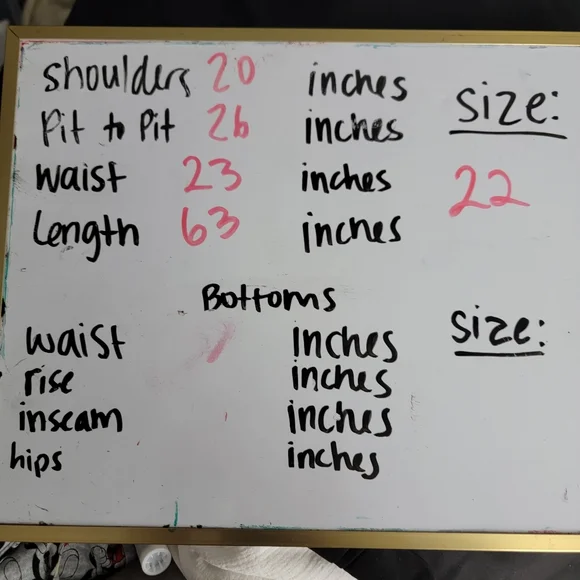 shoulders 20 inches
Pit to Pit 26 inches
waist 23 inches
Length 63 inches
size:
22
Bottoms
waist inches
rise inches
inseam inches
hips inches
size: